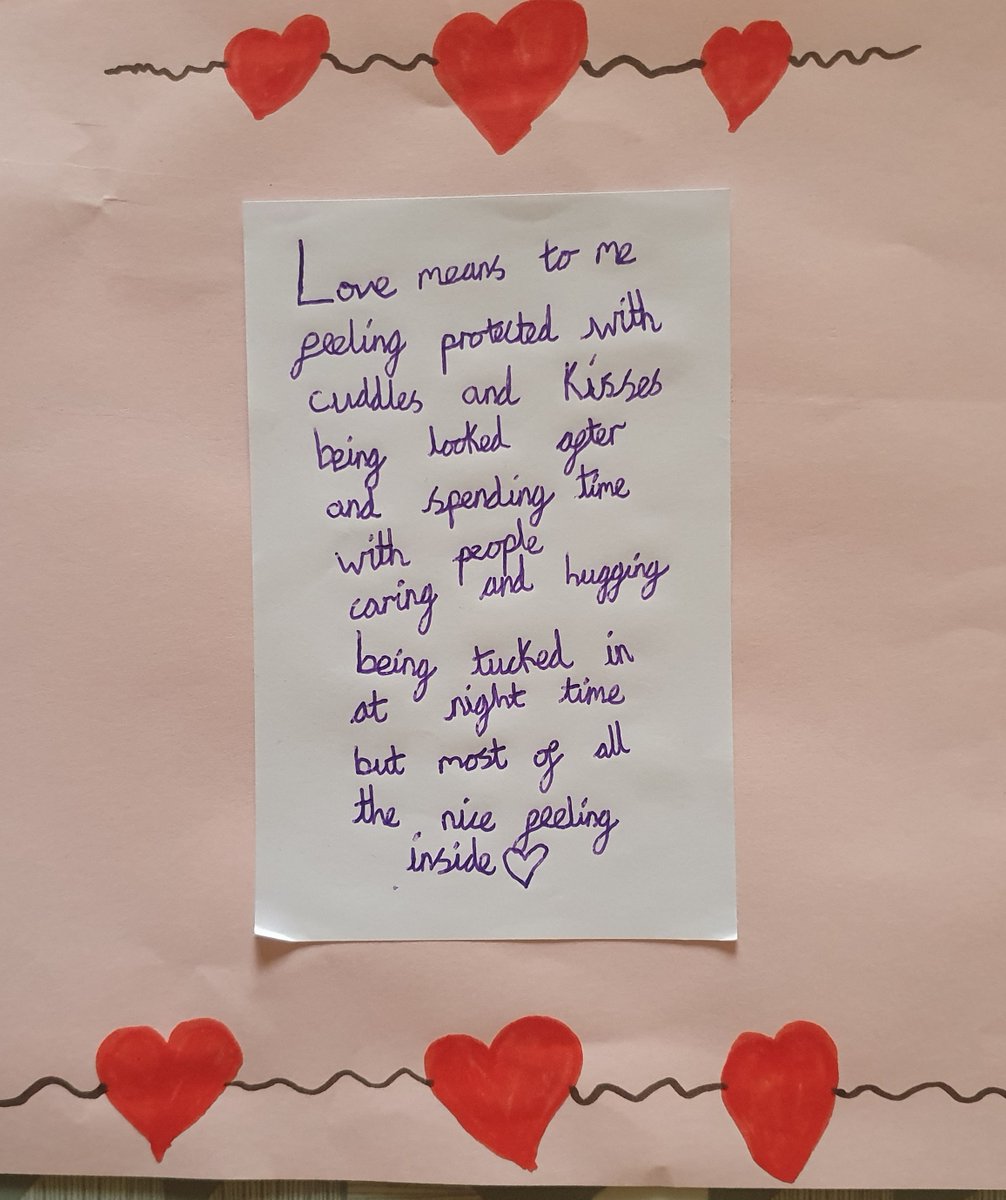 Love means to me
feeling protected with
cuddles and kisses
being looked after
and spending time
with people
caring and hugging
being tucked in
at night time
but most of all
the nice feeling
inside ♡